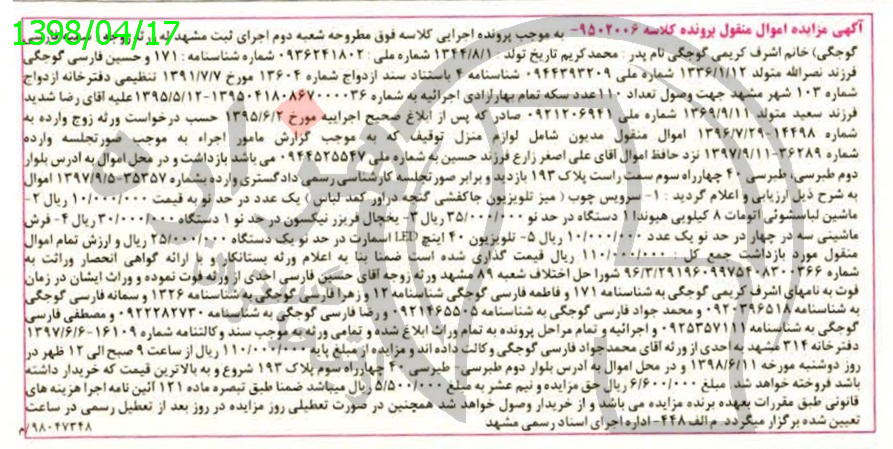 1398/04/17
آگهی مزایده اموال منقول پرونده کلاسه ۹۵۰۲۰۰۶- به موجب پرونده اجرایی کلاسه فوق مطروحه شعبه دوم اجرای ثبت مشهد له ورثه زوجه (سمانه فارسی
گوجگی) خانم اشرف کریمی گوجگی نام پدر: محمدکریم تاریخ تولد: ۱۳۴۴/۸/۱ شماره ملی: ۰۹۳۶۲۴۱۸۰۲ شماره شناسنامه: ۱۷۱ و حسین فارسی گوجگی
فرزند نصرالله متولد ۱۳۳۶/۱/۱۲ شماره ملی ۰۹۴۴۳۹۳۲۰۹ شناسنامه ۴ باستناد سند ازدواج شماره ۱۳۶۰۴ مورخ ۱۳۹۱/۷/۷ تنظیمی دفترخانه ازدواج
شماره ۱۰۳ شهر مشهد جهت وصول تعداد ۱۱۰عدد سکه تمام بهارآزادی اجرائیه به شماره ۱۳۹۵۰۴۱۸۰۸۶۷۰۰۰۰۳۶-۱۳۹۵/۵/۱۲علیه آقای رضا شدید
فرزند سعید متولد ۱۳۶۹/۹/۱۱ شماره ملی ۰۹۲۱۲۰۶۹۴۱ صادر که پس از ابلاغ صحیح اجراییه مورخ ۱۳۹۵/۶/۲ حسب درخواست ورثه زوج وارده به
شماره ۱۴۴۹۸-۱۳۹۶/۷/۲۹ اموال منقول مدیون شامل لوازم منزل توقیف که به موجب گزارش مامور اجراء به موجب صورتجلسه وارده به
شماره ۳۶۲۸۹-۱۳۹۷/۹/۱۱ نزد حافظ اموال آقای علی اصغر زارع فرزند حسین به شماره ملی ۰۹۴۴۵۲۵۵۴۷ می باشد بازداشت و در محل اموال به آدرس بلوار
دوم طبرسی، طبرسی ۴۰ چهارراه سوم سمت راست پلاک ۱۹۳ بازدید و برابر صورتجلسه کارشناسی رسمی دادگستری وارده بشماره ۳۵۳۵۷-۱۳۹۷/۹/۵ اموال
به شرح ذیل ارزیابی و اعلام گردید: ۱- سرویس چوب (میز تلویزیون جاکفشی گنجه دراور کمد لباس) یک عدد در حد نو به قیمت ۱۰/۰۰۰/۰۰۰ ریال ۲-
ماشین لباسشوئی اتومات ۸ کیلویی هیوندا ۱ دستگاه در حد نو ۳۵/۰۰۰/۰۰۰ ریال ۳- یخچال فریزر نیکسون در حد نو ۱ دستگاه ۳۰/۰۰۰/۰۰۰ ریال ۴- فرش
ماشینی سه در چهار در حد نو یک عدد ۱۰/۰۰۰/۰۰۰ ریال ۵- تلویزیون ۴۰ اینچ LED اسمارت در حد نو یک دستگاه ۲۵/۰۰۰/۰۰۰ ریال و ارزش تمام اموال
منقول مورد بازداشت جمع کل: ۱۱۰/۰۰۰/۰۰۰ ریال قیمت گذاری شده است ضمنا بنا به اعلام ورثه بستانکار و با ارائه گواهی انحصار وراثت به
شماره ۹۶/۳/۲۹۱۹۶۰۹۹۷۵۴۰۸۳۰۰۳۶۶ شورا حل اختلاف شعبه ۸۹ مشهد ورثه زوجه آقای حسین فارسی احدی از ورثه فوت نموده و وراث ایشان در زمان
فوت به نامهای اشرف کریمی گوجگی به شناسنامه ۱۷۱ و فاطمه فارسی گوجگی شناسنامه ۱۲ و زهرا فارسی گوجگی به شناسنامه ۱۳۲۶ و سمانه فارسی گوجگی
به شناسنامه ۰۹۲۰۳۹۶۵۱۸ و محمد جواد فارسی گوجگی به شناسنامه ۰۹۲۱۴۶۵۵۰۵ و رضا فارسی گوجگی به شناسنامه ۰۹۲۲۲۸۲۷۳۰ و مصطفی فارسی
گوجگی به شناسنامه ۰۹۲۵۳۵۷۱۱۱ و اجرائیه و تمام مراحل پرونده به تمام وراث ابلاغ شده و تمامی ورثه به موجب سند وکالتنامه شماره ۱۶۱۰۹-۱۳۹۷/۶/۶
دفترخانه ۳۱۴ مشهد به احدی از ورثه آقای محمدجواد فارسی گوجگی وکالت داده اند و مزایده از مبلغ پایه ۱۱۰/۰۰۰/۰۰۰ ریال از ساعت ۹ صبح الی ۱۲ ظهر در
روز دوشنبه مورخه ۱۳۹۸/۶/۱۱ و در محل اموال به آدرس بلوار دوم طبرسی - طبرسی ۴۰ چهارراه سوم پلاک ۱۹۳ شروع و به بالاترین قیمت که خریدار داشته
باشد فروخته خواهد شد. مبلغ ۶/۶۰۰/۰۰۰ ریال حق مزایده و نیم عشر به مبلغ ۵/۵۰۰/۰۰۰ ریال میباشد ضمنا طبق تبصره ماده ۱۲۱ آئین نامه اجرا هزینه های
قانونی طبق مقررات بعهده برنده مزایده می باشد و از خریدار وصول خواهد شد همچنین در صورت تعطیلی روز مزایده در روز بعد از تعطیل رسمی در ساعت
تعیین شده برگزار میگردد. م الف ۴۴۸- اداره اجرای اسناد رسمی مشهد
۹۸۰۴۷۳۴۸/م